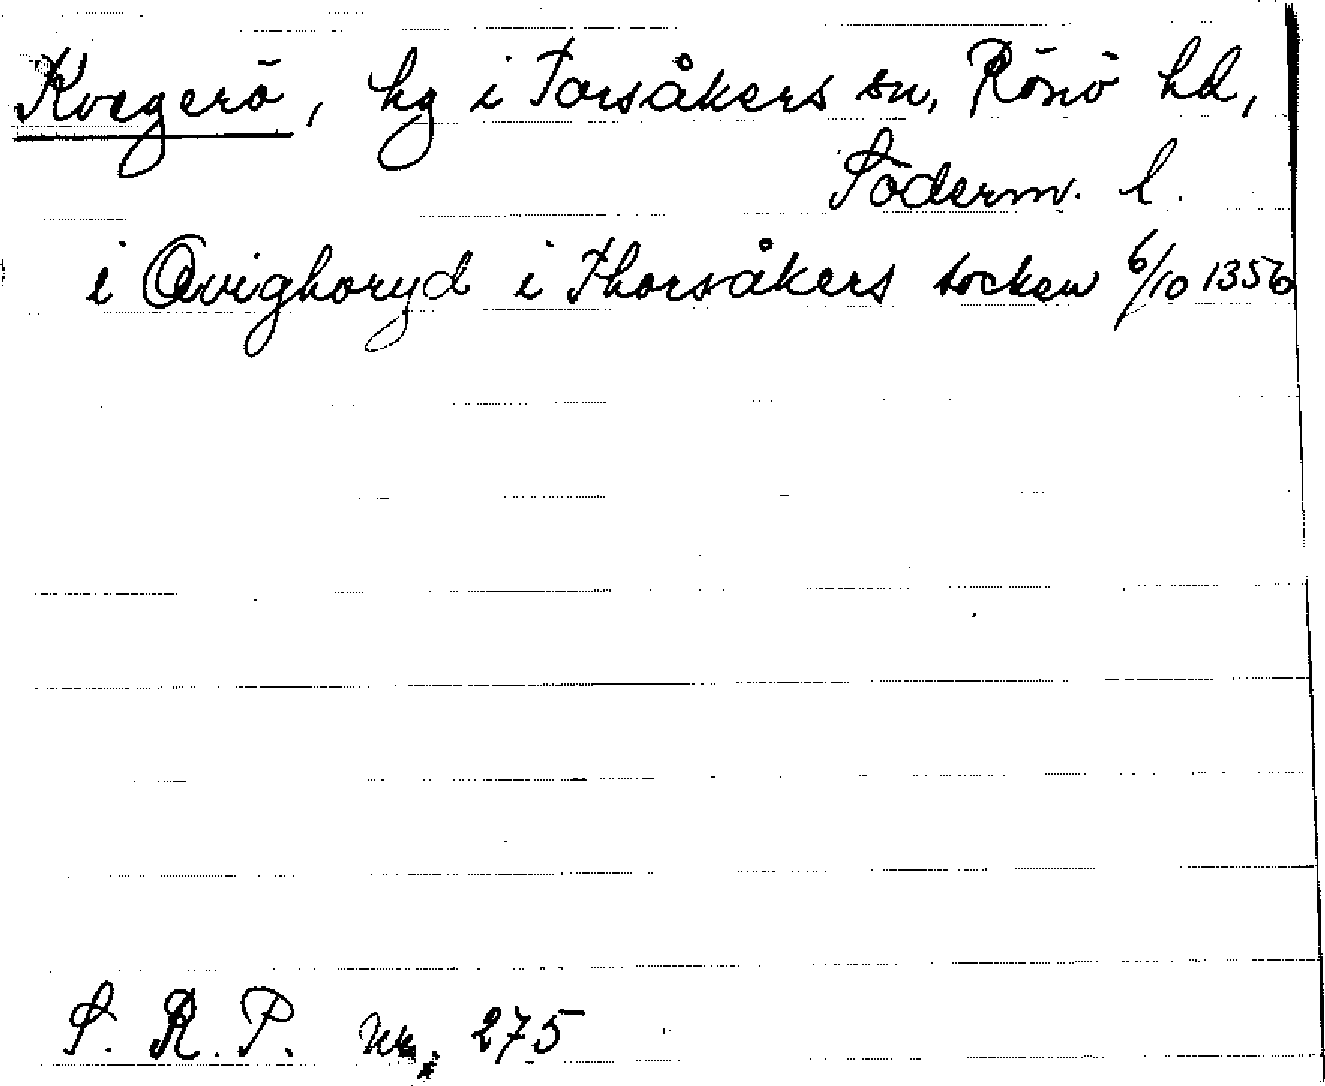 Kvegerö, hg i Torsåkers sn, Rönö hd,
Söderm. l.
i Qvighoryd i Thorsåkers socken 6/10 1356
S. R. P. nr. 275